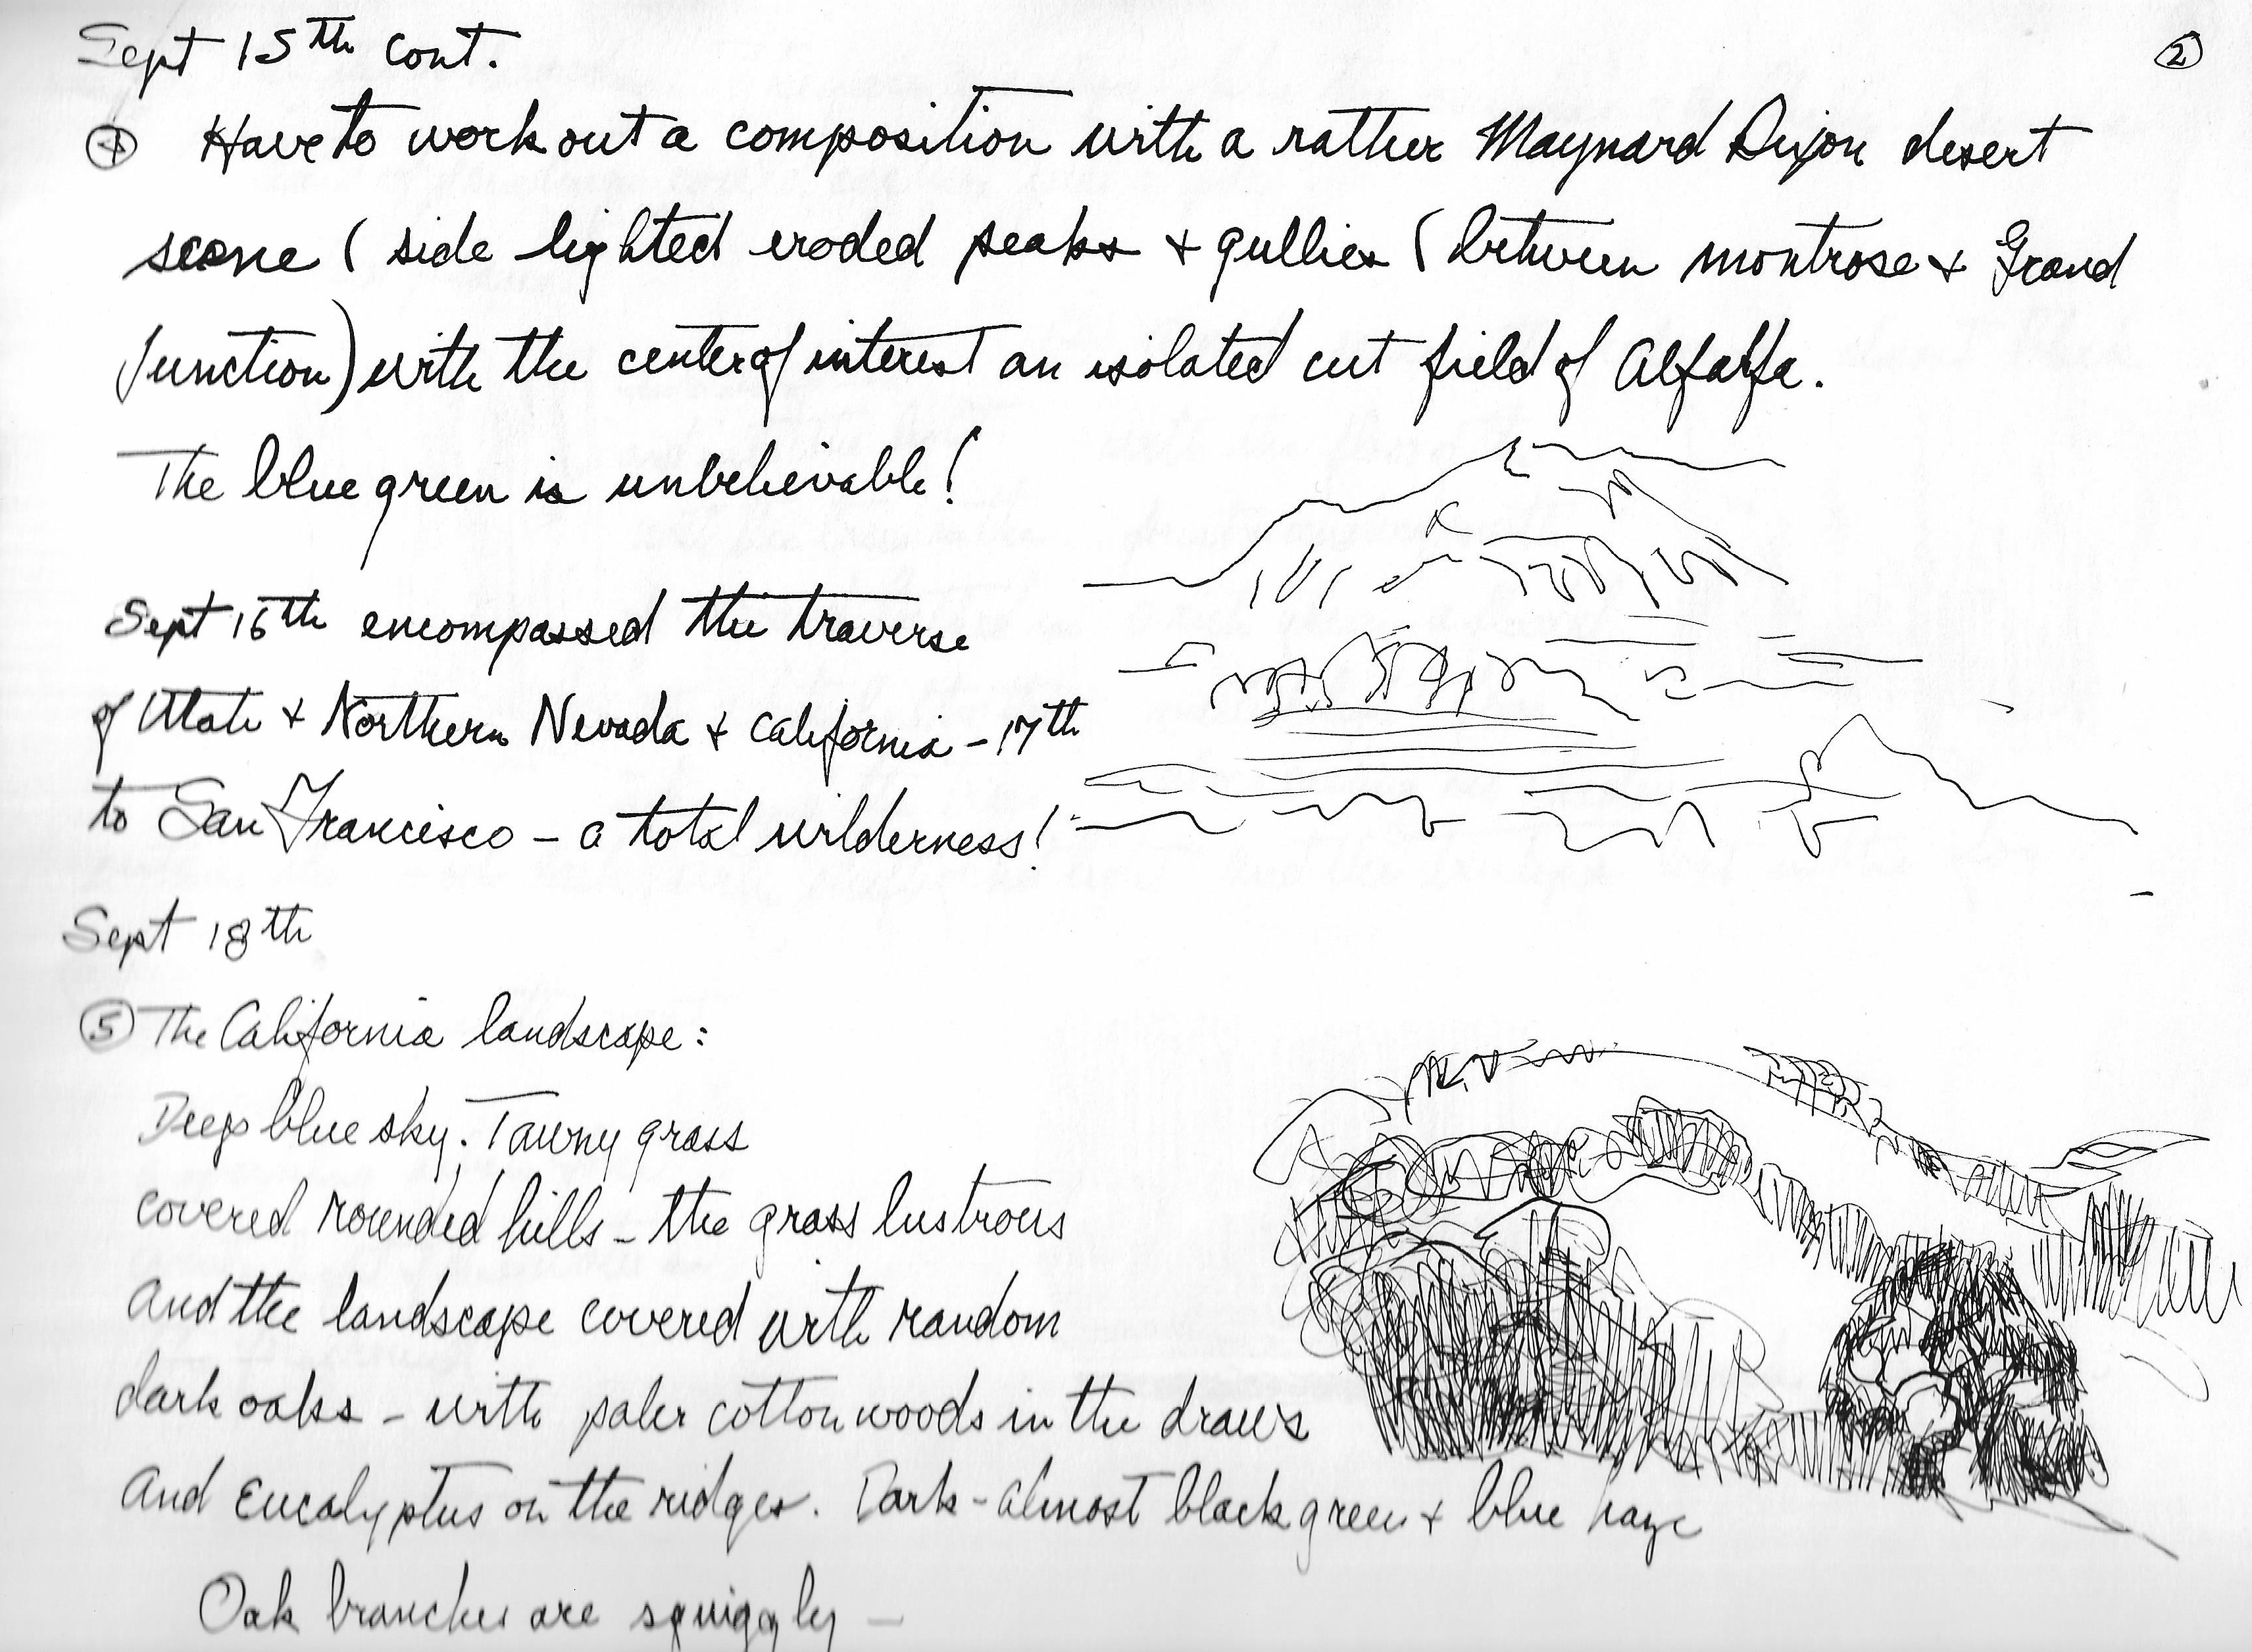 Sept 15th cont.
②
④ Have to work out a composition with a rather Maynard Dixon desert
scene ( side lighted eroded peaks + gullies ( between montrose + Grand
Junction) with the center of interest an isolated cut field of Alfalfa.
The blue green is unbelievable!
Sept 16th encompassed the traverse
of Utah + Northern Nevada + California - 17th
to San Francisco - a total wilderness!
Sept 18th
⑤ The California landscape:
Deep blue sky. Tawny grass
covered rounded hills - the grass lustrous
and the landscape covered with random
dark oaks - with paler cottonwoods in the draws
and Eucalyptus on the ridges. Dark - almost black green + blue haze
Oak branches are squiggly -